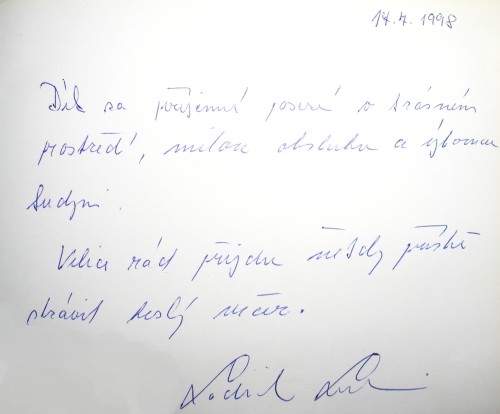 14.4.1998
Dík za příjemné posezení v krásném
prostředí, milou obsluhu a výbornou
kuchyni.
Velice rád přijdu někdy příště
strávit hezký večer.